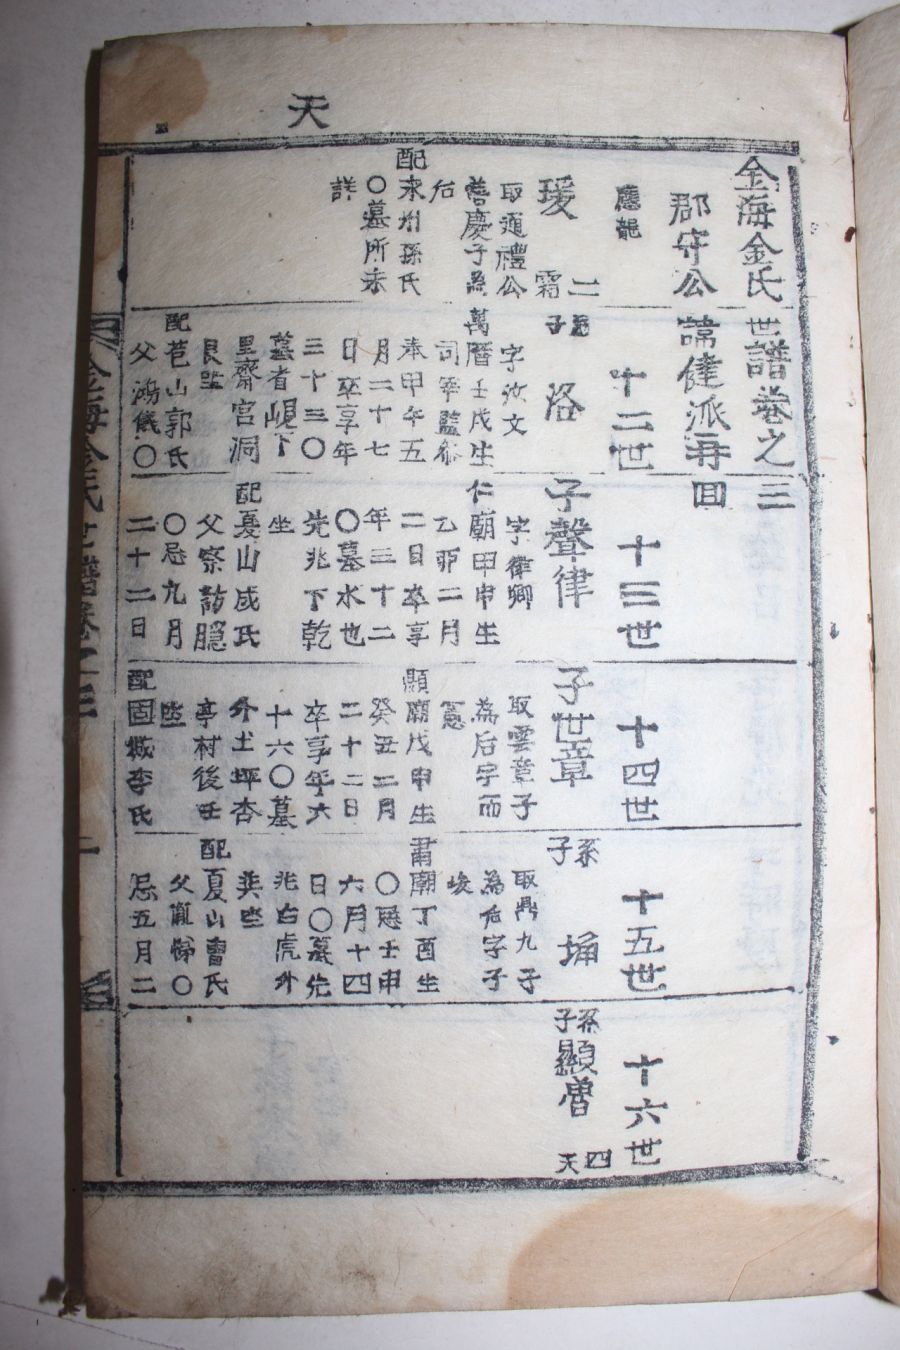 天
金海金氏世譜卷之三
郡守公諱健派再回
應龍
瑗
二
霜
取通禮公
善慶子爲
后
配密州孫氏
○墓所未
詳
十二世
子洛
字汝文
萬曆壬戌生
司宰監
奉甲午五
月二十七
日卒享年
三十三○
墓省峴下
里齋宮洞
艮坐
配苞山郭氏
父鴻儀○
十三世
子聲律
字律卿
仁廟甲申生
乙卯二月
二日卒享
年三十二
○墓水也
先兆下乾
坐
配夏山成氏
父察訪
○忌九月
二十二日
十四世
子世章
取雲章子
爲后字而
憲
顯廟戊申生
癸丑二月
二十二日
卒享年六
十六○墓
外土坪杏
亭村後壬
坐
配固城李氏
十五世
系子
埇
取鼎九子
爲后字子
峻
肅廟丁酉生
○忌壬申
六月十四
日○墓先
兆白虎外
巽坐
配夏山曺氏
父胤○
忌五月二
十六世
系子顯曾
四
天
金海金氏世譜卷之三
一